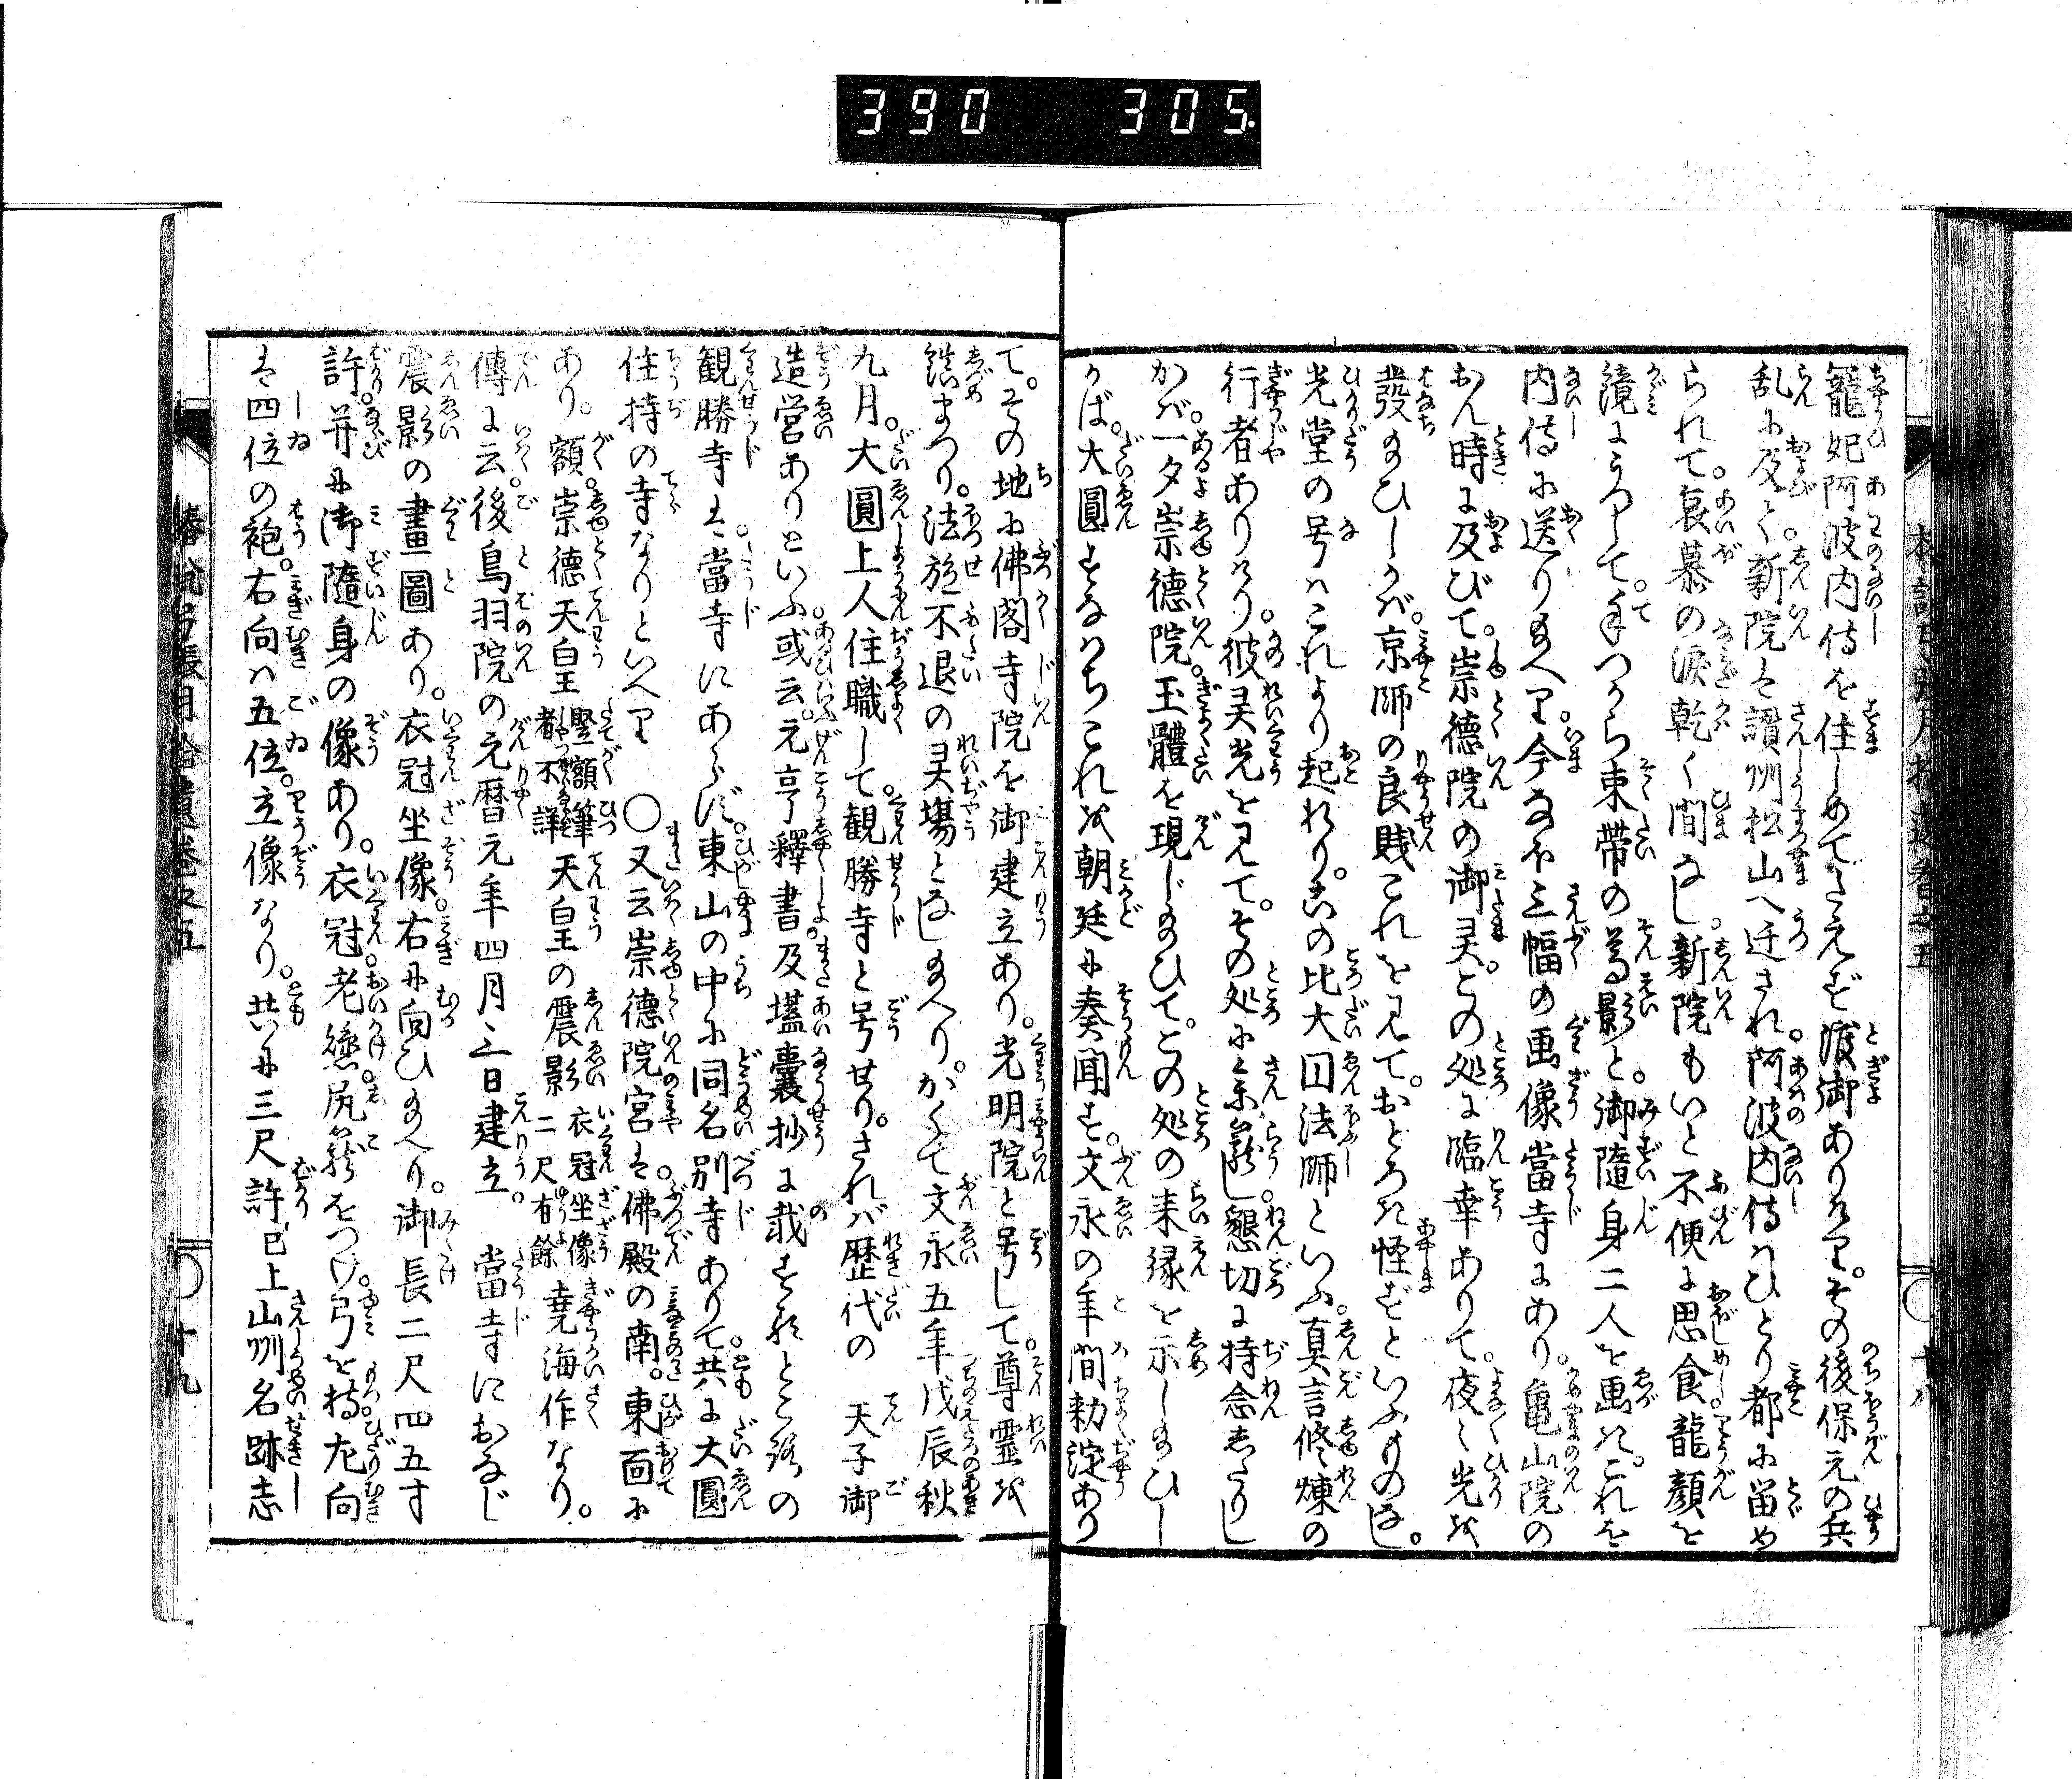 390 305
寵妃阿波内侍を住しめてたえず渡御ありけり。その後保元の兵
乱に及びて。新院は讃州松山へ迁され。阿波内侍はひとり都に留め
られて。哀慕の涙乾く間なし。新院もいと不便に思食龍顔を
鏡にうつして。手つから束帯の尊影と。御隨身二人を画き。これを
内侍に送り給へり。今なほ三幅の画像當寺にあり。亀山院の
おん時に及びて。崇徳院の御灵。この処に臨幸ありて。夜〻光を
發給ひしかば。京師の良賎これを見て。おどろき怪ずといふものなし。
光堂の号はこれより起れり。その比大円法師といふ。真言修煉の
行者ありけり。彼灵光を見て。その処に参籠し懇切に持念したりし
かば。一夕崇徳院。玉體を現じ給ひて。この処の来縁を示し給ひし
かば。大圓すなはちこれを朝廷に奏聞す。文永の年間勅淀あり
て。その地に佛閣寺院を御建立あり。光明院と号して。尊霊を
鎮まつり。法施不退の灵場となし給へり。かくて文永五年戊辰秋
九月。大圓上人住職して。観勝寺と号せり。されば歴代の 天子御
造営ありといふ。或云。元亨釋書。及壒嚢抄に載するところの
観勝寺は。當寺にあらず。東山の中に同名別寺ありて。共に大圓
住持の寺なりといへり ○又云崇徳院宮は。佛殿の南。東面に
あり。額。崇徳天皇 竪額筆者不詳 天皇の震影 衣冠坐像二尺有餘 尭海作なり。
傳に云。後鳥羽院の元暦元年四月三日建立。 當寺におなじ
震影の畫圖あり。衣冠坐像。右に向ひ給へり。御長二尺四五寸
許。并に御隨身の像あり。衣冠。老懸。尻籠をつけ。弓を持。左向
は四位の袍。右向は五位。立像なり。共に三尺許 已上山州名跡志
椿説弓張月拾遺巻之五
十九